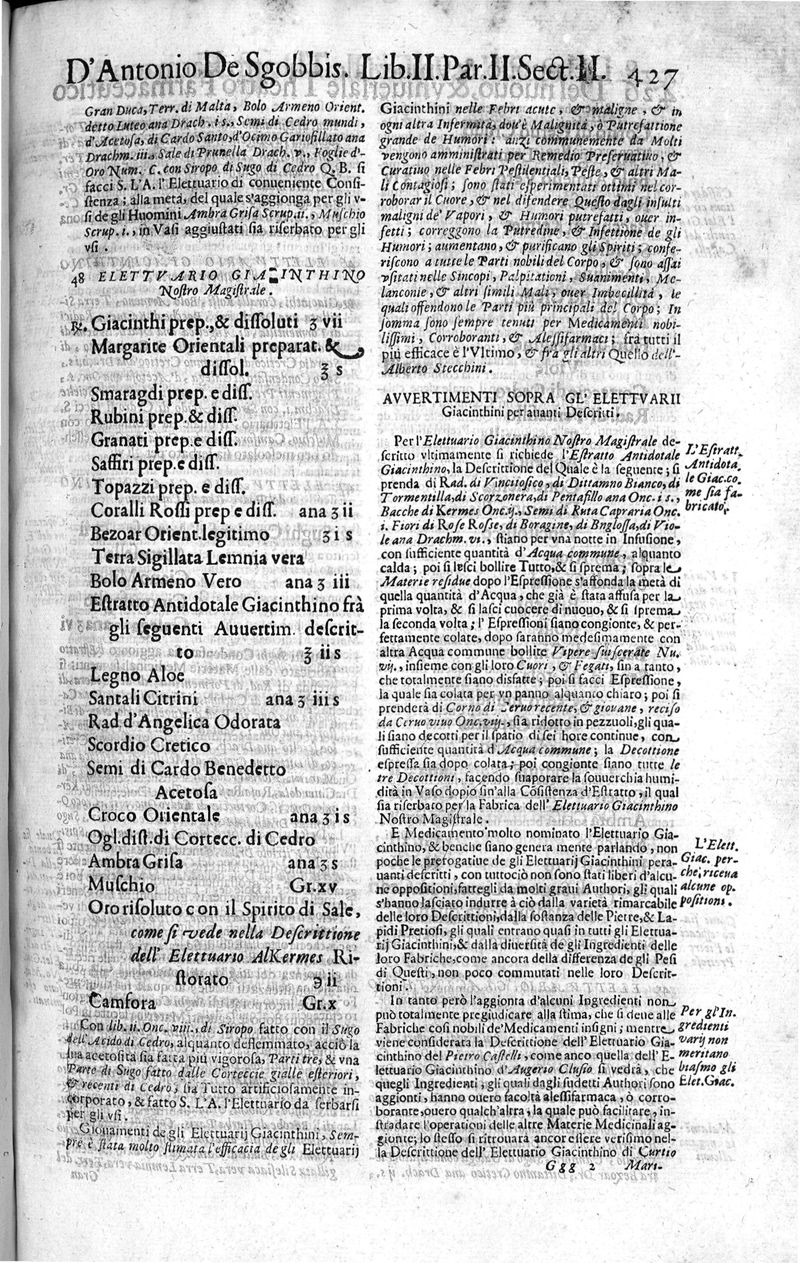 D'Antonio De Sgobbis. Lib.II.Par.II.Sect.II. 427
Gran Duca, Terr. di Malta, Bolo Armeno Orient.
detto Luteo ana Drach. i s., Semi di Cedro mundi,
d'Acetosa, di Cardo Santo, d'Ocimo Gariofillato ana
Drachm. iii., Sale di Prunella Drach. v., Foglie d'-
Oro Num. C. con Siropo di Sugo di Cedro Q. B. si
facci S. L'A. l'Elettuario di conueniente Consi-
stenza; alla metà, del quale s'aggionga per gli v-
si de gli Huomini Ambra Grisa Scrup. ii., Muschio
Scrup. i., in Vasi aggiustati sia riserbato per gli
vsi.
48 ELETTVARIO GIACINTHINO
Nostro Magistrale.
℞. Giacinthi prep., & dissoluti ʒ vii
Margarite Orientali preparat. &
dissol. ℥ s
Smaragdi prep. e diss.
Rubini prep. & diss.
Granati prep. e diss.
Saffiri prep. e diss.
Topazzi prep. e diss.
Coralli Rossi prep e diss. ana ʒ ii
Bezoar Orient. legitimo ʒ i s
Terra Sigillata Lemnia vera
Bolo Armeno Vero ana ʒ iii
Estratto Antidotale Giacinthino frà
gli seguenti Auuertim. descrit-
to ℥ ii s
Legno Aloe
Santali Citrini ana ʒ iii s
Rad d'Angelica Odorata
Scordio Cretico
Semi di Cardo Benedetto
Acetosa
Croco Orientale ana ʒ i s
Ogl. dist. di Cortecc. di Cedro
Ambra Grisa ana ʒ s
Muschio Gr. xv
Oro risoluto con il Spirito di Sale,
come si vede nella Descrittione
dell' Elettuario AlKermes Ri-
stotato ℈ ii
Camfora Gr. x
Con lib. ii. Onc. viij., di Siropo fatto con il Sugo
dell'Acido di Cedro, alquanto deflemmato, acciò la
sua acetosità sia fatta più vigorosa, Parti tre, & vna
Parte di Sugo fatto dalle Corteccie gialle esteriori,
& recenti di Cedro, sia Tutto artificiosamente in-
corporato, & fatto S. L'A. l'Elettuario da serbarsi
per gli vsi.
Giouamenti de gli Elettuarij Giacinthini, Sem-
pre è stata molto stimata l'efficacia de gli Elettuarij
Giacinthini nelle Febri acute, & maligne, & in
ogni altra Infermità, dou'è Malignità, ò Putrefattione
grande de Humori: anzi communemente da Molti
vengono amministrati per Remedio Preseruatiuo, &
Curatiuo nelle Febri Pestilentiali, Peste, & altri Ma-
li Contagiosi; sono stati esperimentati ottimi nel cor-
roborar il Cuore, & nel difendere Questo dagli insulti
maligni de' Vapori, & Humori putrefatti, ouer in-
fetti; correggono la Putredine, & Infettione de gli
Humori; aumentano, & purificano gli Spiriti; confe-
riscono a tutte le Parti nobili del Corpo, & sono assai
vsitati nelle Sincopi, Palpitationi, Suanimenti, Me-
lanconie, & altri simili Mali, ouer Imbecillità, le
quali offendono le Parti più principali del Corpo; In
somma sono sempre tenuti per Medicamenti nobi-
lissimi, Corroboranti, & Alessifarmaci; frà tutti il
più efficace è l'Vltimo, & frà gli altri Quello dell'-
Alberto Stecchini.
AVVERTIMENTI SOPRA GL'ELETTVARII
Giacinthini per auanti Descritti.
Per l'Elettuario Giacinthino Nostro Magistrale de-
scritto vltimamente si richiede l'Estratto Antidotale
Giacinthino, la Descrittione del Quale è la seguente; si
prenda di Rad. di Vincitosico, di Dittamno Bianco, di
Tormentilla, di Scorzonera, di Pentafillo ana Onc. i s.,
Bacche di Kermes Onc. ij., Semi di Ruta Capraria Onc.
i. Fiori di Rose Rosse, di Boragine, di Buglossa, di Vio-
le ana Drachm. vi., stiano per vna notte in Infusione,
con sufficiente quantità d'Acqua commune, alquanto
calda; poi si lasci bollire Tutto, & si sprema; sopra le
Materie residue dopo l'Espressione s'affonda la metà di
quella quantità d'Acqua, che già è stata affusa per la
prima volta, & si lasci cuocere di nuouo, & si sprema
la seconda volta; l'Espressioni siano congionte, & per-
fettamente colate, dopo saranno medesimamente con
altra Acqua commune bollite Vipere suiscerate Nu.
vij., insieme con gli loro Cuori, & Fegati, sin a tanto,
che totalmente siano disfatte; poi si facci Espressione,
la quale sia colata per vn panno alquanto chiaro; poi si
prenderà di Corno di Ceruo recente, & giouane, reciso
da Ceruo viuo Onc. vij., sia ridotto in pezzuoli, gli qua-
li siano decotti per il spatio di sei hore continue, con
sufficiente quantità d'Acqua commune; la Decottione
espressa sia dopo colata; poi congionte siano tutte le
tre Decottioni, facendo suaporare la souuerchia humi-
dità in Vaso dopio sin'alla Cósistenza d'Estratto, il qual
sia riserbato per la Fabrica dell'Elettuario Giacinthino
Nostro Magistrale.
E Medicamento molto nominato l'Elettuario Gia-
cinthino, & benche siano genera mente parlando, non
poche le prerogatiue de gli Elettuarij Giacinthini pera-
uanti descritti, con tuttociò non sono stati liberi d'alcu-
ne oppositioni, fattegli da molti graui Authori, gli quali
s'hanno lasciato indurre à ciò dalla varietà rimarcabile
delle loro Descrittioni, dalla sostanza delle Pietre, & La-
pidi Pretiosi, gli quali entrano quasi in tutti gli Elettua-
rij Giacinthini, & dalla diuersità de gli Ingredienti delle
loro Fabriche, come ancora della differenza de gli Pesi
di Questi, non poco commutati nelle loro Descrit-
tioni.
In tanto però l'aggionta d'alcuni Ingredienti non
può totalmente pregiudicare alla stima, che si deue alle
Fabriche così nobili de' Medicamenti insigni; mentre
viene considerata la Descrittione dell'Elettuario Gia-
cinthino del Pietro Castelli, come anco quella dell'E-
lettuario Giacinthino d'Augerio Clusio si vedrà, che
quegli Ingredienti, gli quali dagli sudetti Authori sono
aggionti, hanno ouero facoltà alessifarmaca, ò corro-
borante, ouero qualch'altra, la quale può facilitare, in-
stradare l'operationi delle altre Materie Medicinali ag-
gionte; lo stesso si ritrouarà ancor essere verisimo nel-
la Descrittione dell' Elettuario Giacinthino di Curtio
Ggg 2 Mari-
L'Estratt.
Antidota.
le Giac. co-
me sia fa-
bricato.
L'Elett.
Giac. per-
che, riceua
alcune op-
positioni.
Per gl'In-
gredienti
varij non
meritano
biasmo gli
Elet. Giac.